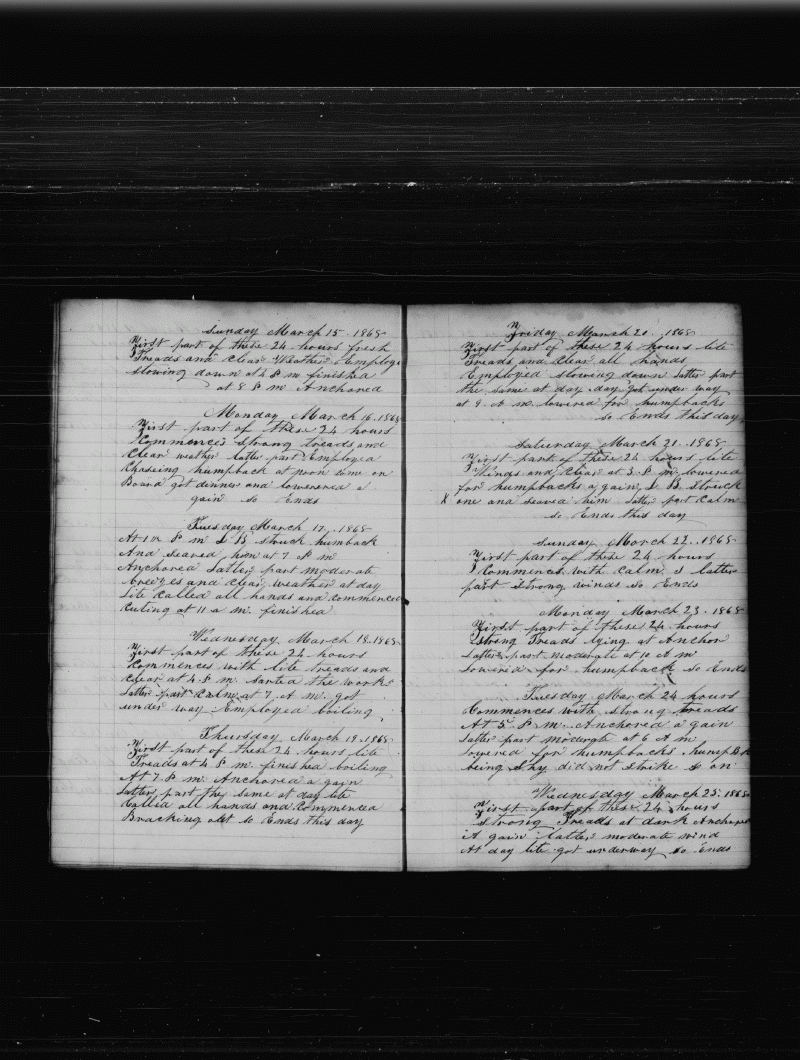 Sunday March 15 - 1868
First part of these 24 hours fresh
Treads and Clear Weather Employ
stowing down at 4 P m finished
at 8 P m Anchored
Monday March 16. 1868
First part of these 24 hours
Commences strong treads and
Clear weather latter part Employed
Chaseing humpback at noon come on
Board got dinner and lowerered a
gain so Ends
Tuesday March 17. 1868
At 1 P m L B struck humback
And seared him at 7 P m
Anchored latter part moderate
breezes and Clear weather at day
lite Called all hands and commenced
Cuting at 11 a m. finished
Wednesday March 18. 1868
First part of these 24 hours
Commences with lite treads and
Clear at 4. P m. sarted the works
latter part Calm at 7. A m. got
under way Employed boiling
Thursday March 19. 1868
First part of these 24 hours lite
Treads at 4 P m. finished boiling
At 7. P m. Anchored a gain
latter part the same at day lite
Called all hands and Commenced
Bracking out so Ends this day
Friday March 20. 1868
First part of these 24 hours lite
Treads and Clear all hands
Employed stowing down latter part
the same at day day got under way
at 9. A m. lowered for humpbacks
so Ends this day
Saturday March 21. 1868
First part of these 24 hours lite
Winds and Clear at 3. P m. lowered
for humpbacks a gain L B struck
X one and seaved him latter part Calm
so Ends this day
Sunday March 22. 1868
First part of these 24 hours
Commences with Calm latter
part strong winds so Ends
Monday March 23. 1868
First part of these 24 hours
strong Treads lying at Anchor
latter part moderate at 10 A m
lowered for humpback so Ends
Tuesday March 24 hours
Commences with stroug treads
At 5. P m. Anchored a gain
latter part moderate at 6 A m
lowered for humpbacks humpBk
being shy did not strike so on
Wednesday March 25. 1868
First part of these 24 hours
strong Treads at dark Anchored
a gain latter moderate wind
At day lite got underway so Ends